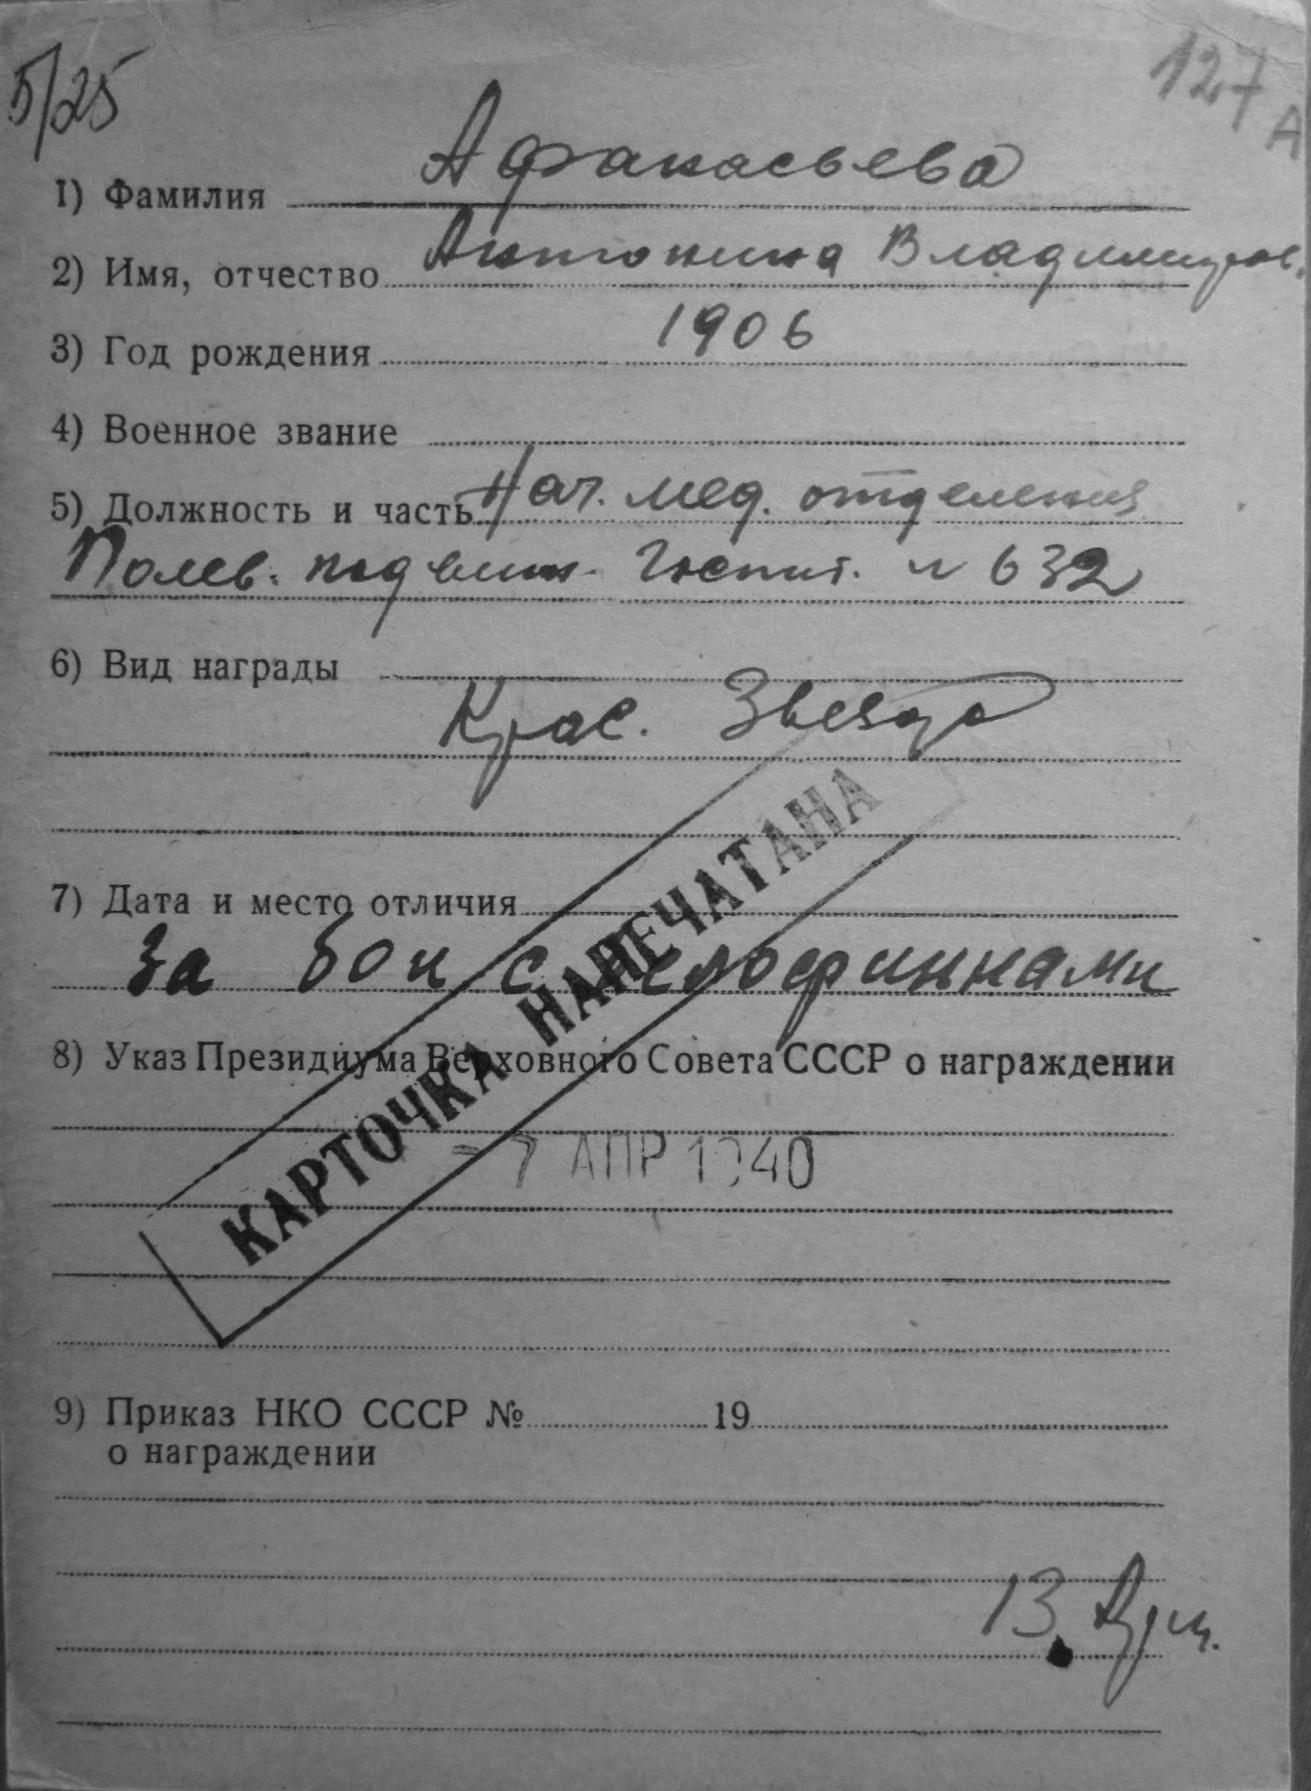 5/25
127 А
1) Фамилия Афанасьева
2) Имя, отчество Антонина Владимиров.
3) Год рождения 1906
4) Военное звание
5) Должность и часть Нач. мед. отделения
Полев. подвиж. Госпит. № 632
6) Вид награды
Крас. Звезда
7) Дата и место отличия
За бои с белофиннами
КАРТОЧКА НАПЕЧАТАНА
8) Указ Президиума Верховного Совета СССР о награждении
- 7 АПР 1940
9) Приказ НКО СССР № 19
о награждении
13. Арм.